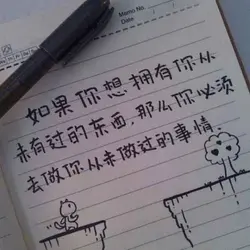 Memo No.
如果你想拥有你从
未有过的东西,那么你必须
去做你从未做过的事情.